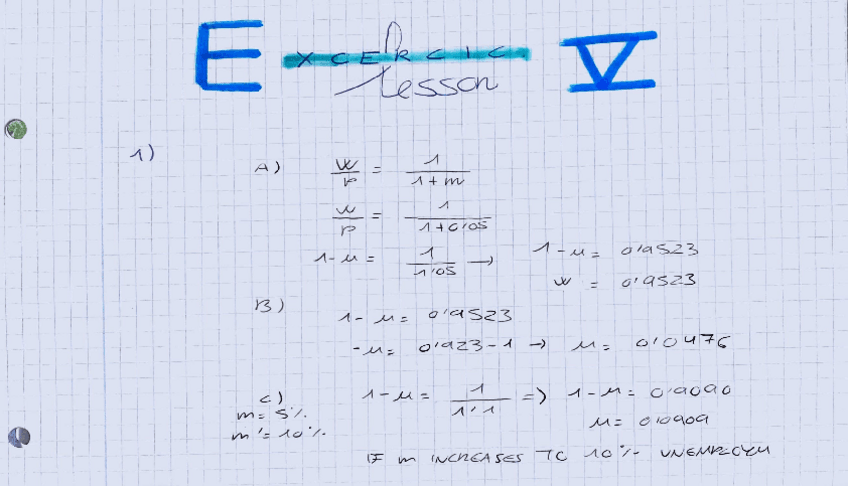 Excercic V
lesson
1)
A) w/p = 1/1+m
w/p = 1/1+0'05
1-u = 1/1'05 → 1-u = 0'9523
w = 0'9523
B) 1-u = 0'9523
-u = 0'923-1 → u = 0'0476
C) 1-u = 1/1'1 => 1-u = 0'9090
m = 5%
u = 0'0909
m' = 10%
IF m INCREASES TO 10% UNEMPLOYM